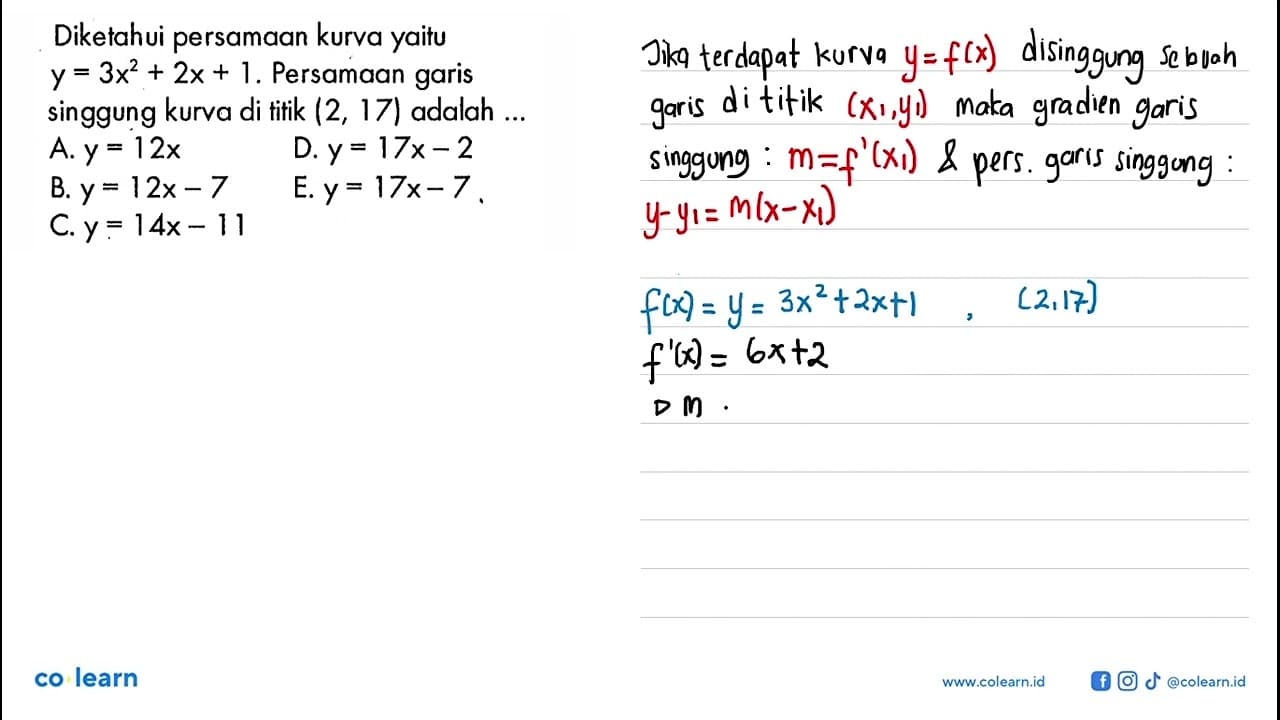 Diketahui persamaan kurva yaitu
y = 3x² + 2x + 1. Persamaan garis
singgung kurva di titik (2, 17) adalah ...
A. y = 12x D. y = 17x – 2
B. y = 12x – 7 E. y = 17x – 7
C. y = 14x – 11
Jika terdapat kurva y=f(x) disinggung sebuah
garis di titik (x₁,y₁) maka gradien garis
singgung : m=f'(x₁) & pers. garis singgung :
y-y₁=m(x-x₁)
f(x) = y = 3x²+2x+1 , (2,17)
f'(x) = 6x+2
▷ m
co learn
www.colearn.id @colearn.id